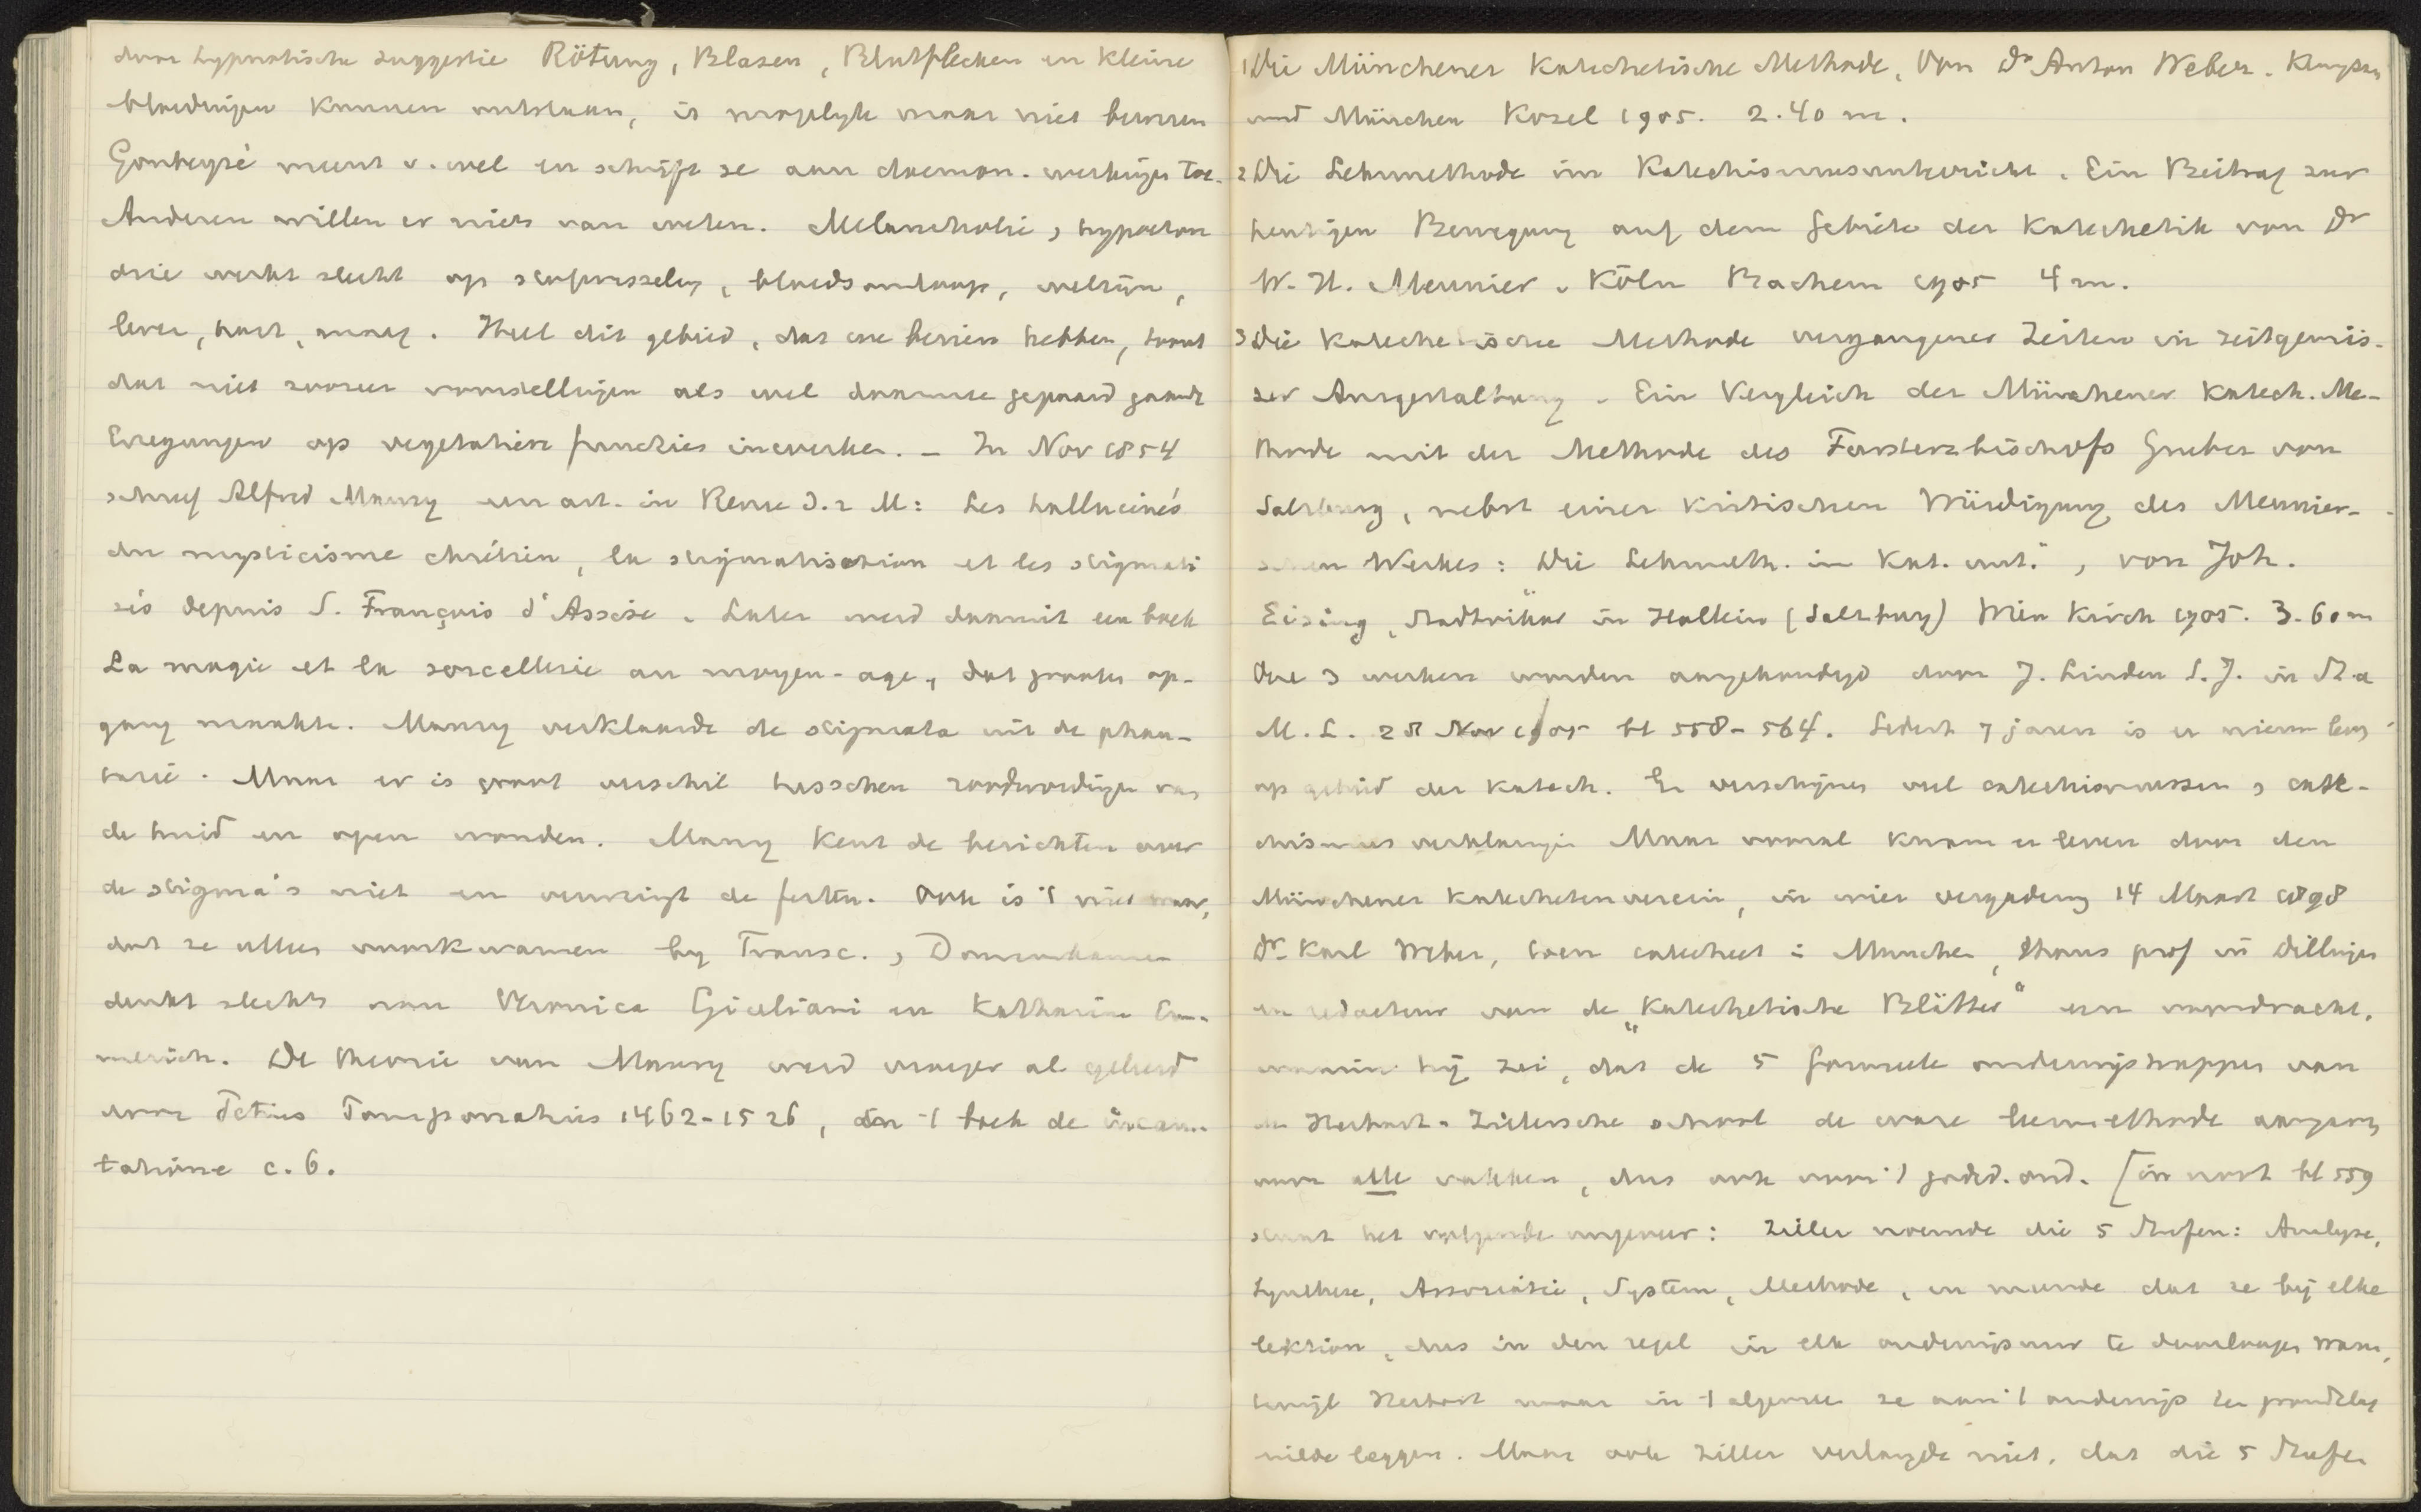 door hypnotische suggestie Rötung, Blasen, Blutflecken en kleine
bloedingen kunnen ontstaan, is mogelijk maar niet bewezen
meent v. wel en schrijft ze aan daemon. werkingen toe.
Anderen willen er niets van weten. Melancholie, hypochon
drie werkt slecht op stofwisseling, bloedsomloop, welzijn,
lever, hart, maag. Heel dit gebied, dat we bezien hebben, toont
dat niet zoozeer voorstellingen als wel daarmee gepaard gaande
Erregungen op vegetatieve functies inwerken. – In Nov 1854
schreef Alfred Maury een art. in Revue d. 2 M: Les hallucinés
du mysticisme chrétien, la stigmatisation et les stigmati
sés depuis S. François d'Assise. Later werd daaruit een boek
La magie et la sorcellerie au moyen-age, dat grooten op-
gang maakte. Maury verklaarde de stigmata uit de phan-
tasie. Maar er is groot verschil tusschen roodwordingen van
de huid en open wonden. Maury kent de berichten over
de stigma's niet en verwringt de feiten. Ook is 't niet waar,
dat ze alleen voorkwamen bij Francisc., Dominikanen
denkt slechts aan Veronica Giuliani en Katharina Em-
merich. De theorie van Maury werd vroeger al geleerd
door Petrus Pomponatius 1462-1526, in 't boek de incan-
tatione c. 6.
1 Die Münchener Katechetische Methode. Von Dr Anton Weber. Kempten
und München Kösel 1905. 2.40 m.
2 Die Lehrmethode im Katechismusunterricht. Ein Beitrag zur
heutigen Bewegung auf dem Gebiete der Katechetik von Dr
W. H. Meunier. Köln Bachem 1905 4 m.
3 Die Katechetische Methode vergangener Zeiten in zeitgemäs-
ser Ausgestaltung. Ein Vergleich der Münchener Katech. Me-
thode mit der Methode des Fürsterzbischofs Gruber von
Salzburg, nebst einer kritischen Würdigung des Meunier-
schen Werkes: Die Lehrmeth. im Kat. unt.", von Joh.
Eising, Stadtvikar in Hallein (Salzburg) Wien Kirsch 1905. 3.60 m
Deze 3 werken worden aangekondigd door J. Linden S.J. in St. a
M. L. 28 Nov 1905 bl 558-564. Sedert 7 jaren is er nieuw leven
op gebied der Katech. Er verschijnen veel catechismussen, cate-
chismus verklaringen Maar vooral kwam er leven door den
Münchener Katechetenverein, in wier vergadering 14 Maart 1898
Dr Karl Weber, toen catecheet in Munchen, thans prof in Dillingen
en redacteur van de „Katechetische Blätter" een voordracht,
waarin hij zei, dat de 5 formeele onderwijstrappen van
de Herbart-Zillersche school de ware leermethode aangaven
voor alle vakken, dus ook voor 't godsd. ond. [in noot bl 559
staat het volgende ongeveer: Ziller noemde die 5 Stufen: Analyse,
Synthese, Associatie, System, Methode, en meende dat ze bij elke
lektion, dus in den regel in elk onderwijsuur te doorloopen waren,
terwijl Herbart maar in 't algemeen ze aan 't onderwijs ten grondslag
wilde leggen. Maar ook Ziller verlangde niet, dat die 5 Stufen